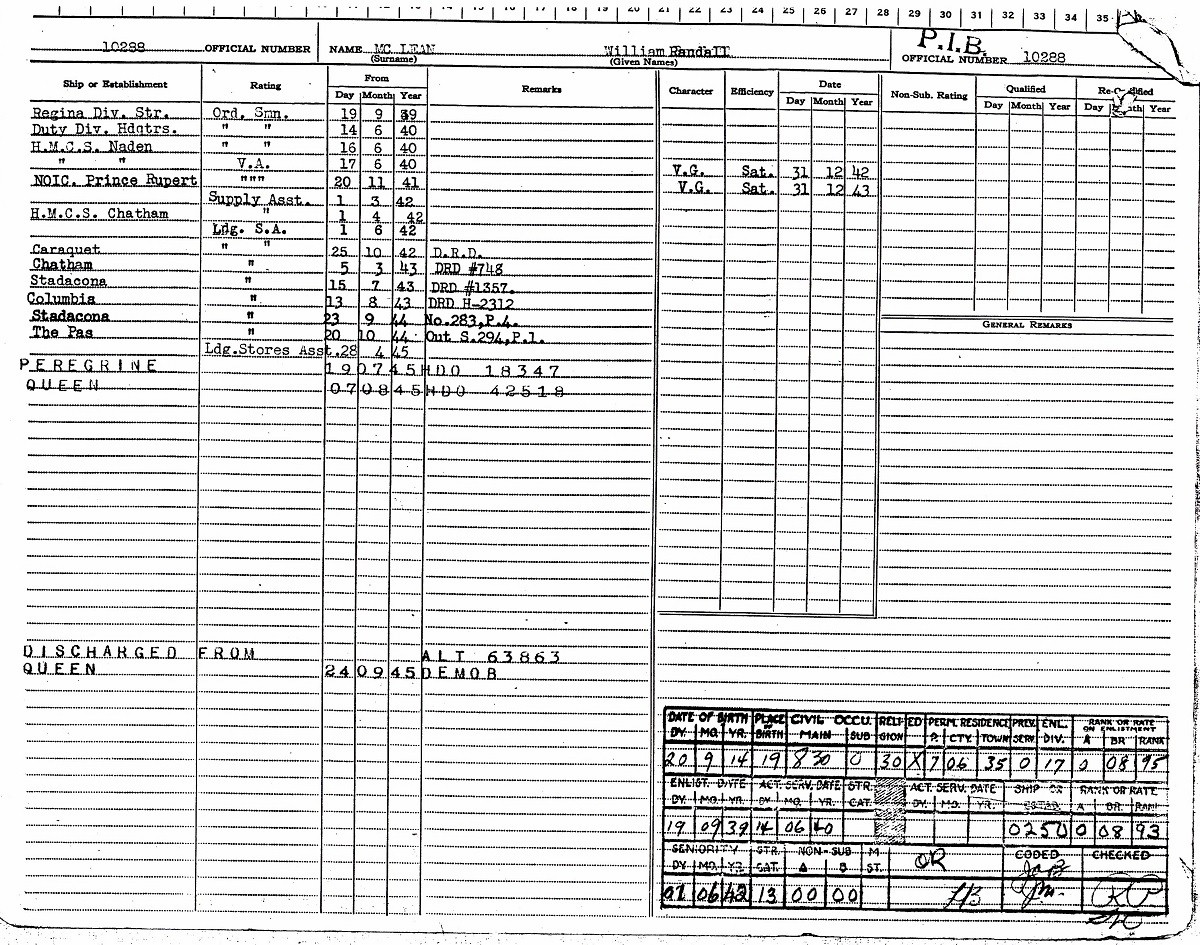 12 13 14 15 16 17 18 19 20 21 22 23 24 25 26 27 28 29 30 31 32 33 34 35
10288 OFFICIAL NUMBER NAME MC LEAN William Randall P.I.B.
(Surname) (Given Names) OFFICIAL NUMBER 10288
Ship or Establishment Rating From Remarks Character Efficiency Date Non-Sub. Rating Qualified
Day Month Year Day Month Year Day Month Year Day Year
Regina Div. Str. Ord. Smn. 19 9 39
Duty Div. Hdqtrs. " " 14 6 40
H.M.C.S. Naden " " 16 6 40
" " V.A. 17 6 40 V.G. Sat. 31 12 42
NOIC. Prince Rupert """ 20 11 41 V.G. Sat. 31 12 43
Supply Asst. 1 3 42
H.M.C.S. Chatham " 1 4 42
Ldg. S.A. 1 6 42
Caraquet " " 25 10 42 D.R.D.
Chatham " 5 3 43 DRD #748
Stadacona " 15 7 43 DRD #1357.
Columbia " 13 8 43 DRD H-2312
Stadacona " 23 9 44 No.283,P.4.
The Pas " 20 10 44 Out S.294,P.1.
GENERAL REMARKS
Ldg.Stores Asst. 28 4 45
PEREGRINE 19 07 45 HDO 18347
QUEEN 07 08 45 HDO 42518
DISCHARGED FROM ALT 63863
QUEEN 24 09 45 DEMOB
DATE OF BIRTH PLACE CIVIL OCCU. RELI- ED PERM. RESIDENCE PREV. ENL. RANK OR RATE
ON ENLISTMENT
DY. MO. YR. BIRTH MAIN SUB GION P. CTY. TOWN SERV DIV. A BR RANK
20 9 14 19 830 0 30 X 7 06 35 0 17 0 08 95
ENLIST. DATE ACT. SERV. DATE STR. ACT. SERV. DATE SHIP OR RANK OR RATE
DY. MO. YR. DY. MO. YR. CAT. DY. MO. YR. ESTAB. A BR. RANK
19 09 39 14 06 40 0250 0 08 93
SENIORITY STR. NON-SUB M. OR CODED CHECKED
DY. MO. YR. CAT. A B ST.
01 06 42 13 00 00